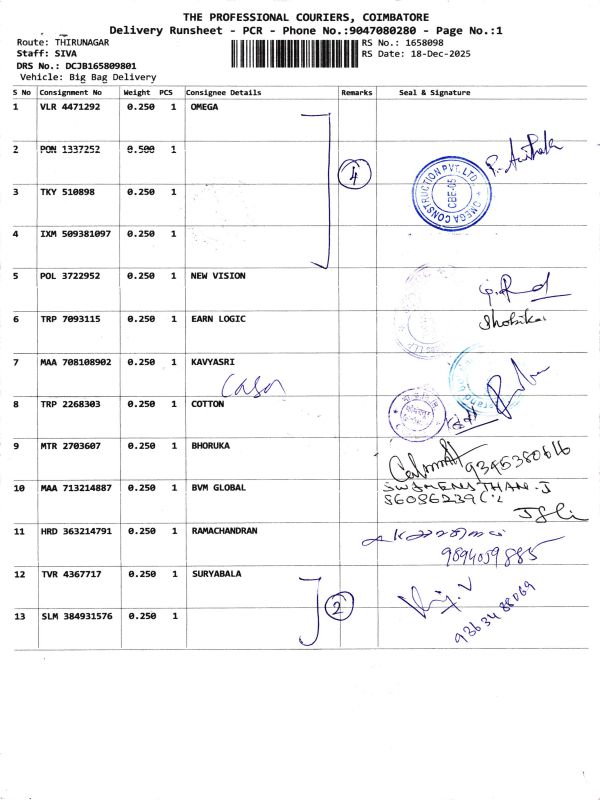 THE PROFESSIONAL COURIERS, COIMBATORE
Delivery Runsheet - PCR - Phone No.:9047080280 - Page No.:1
Route: THIRUNAGAR
Staff: SIVA
DRS No.: DCJB165809801
Vehicle: Big Bag Delivery
RS No.: 1658098
RS Date: 18-Dec-2025
S No Consignment No Weight PCS Consignee Details Remarks Seal & Signature
1 VLR 4471292 0.250 1 OMEGA
2 PON 1337252 0.500 1
4
OMEGA CONSTRUCTION PVT. LTD
CBE-05
3 TKY 510898 0.250 1
4 IXM 509381097 0.250 1
5 POL 3722952 0.250 1 NEW VISION
6 TRP 7093115 0.250 1 EARN LOGIC
Shobika
7 MAA 708108902 0.250 1 KAVYASRI
8 TRP 2268303 0.250 1 COTTON
9 MTR 2703607 0.250 1 BHORUKA
9345380616
10 MAA 713214887 0.250 1 BVM GLOBAL
11 HRD 363214791 0.250 1 RAMACHANDRAN
9894059885
12 TVR 4367717 0.250 1 SURYABALA
2
9363488069
13 SLM 384931576 0.250 1